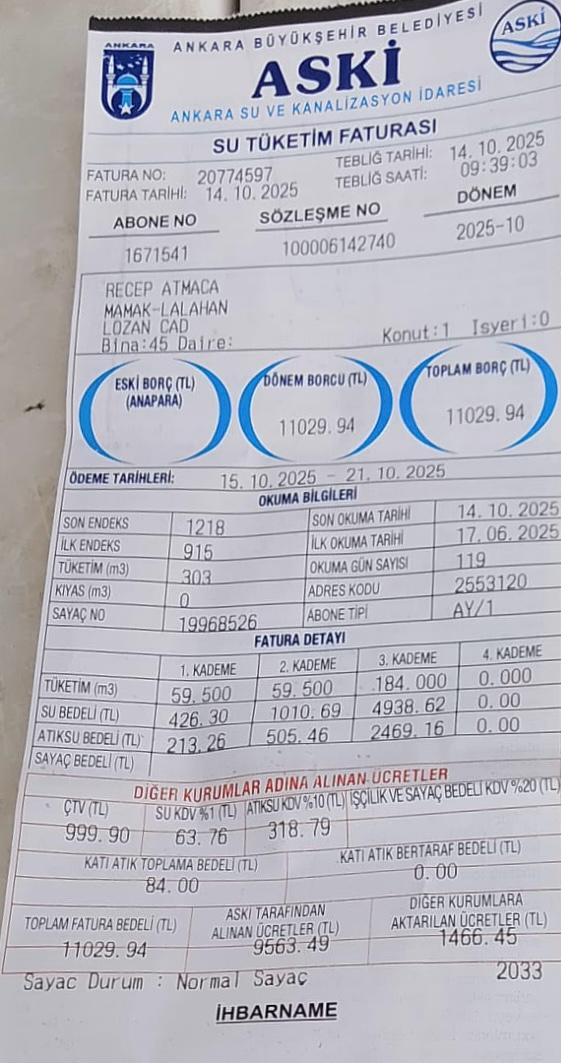 ANKARA
ANKARA BÜYÜKŞEHİR BELEDİYESİ
ASKİ
ASKİ
ANKARA SU VE KANALİZASYON İDARESİ
SU TÜKETİM FATURASI
FATURA NO: 20774597 TEBLİĞ TARİHİ: 14. 10. 2025
FATURA TARİHİ: 14. 10. 2025 TEBLİĞ SAATİ: 09:39:03
ABONE NO SÖZLEŞME NO DÖNEM
1671541 100006142740 2025-10
RECEP ATMACA
MAMAK-LALAHAN
LOZAN CAD
Bina:45 Daire: Konut:1 Isyeri:0
ESKİ BORÇ (TL) DÖNEM BORCU (TL) TOPLAM BORÇ (TL)
(ANAPARA)
11029. 94 11029. 94
ÖDEME TARİHLERİ: 15. 10. 2025 - 21. 10. 2025
OKUMA BİLGİLERİ
SON ENDEKS 1218 SON OKUMA TARİHİ 14. 10. 2025
İLK ENDEKS 915 İLK OKUMA TARİHİ 17. 06. 2025
TÜKETİM (m3) 303 OKUMA GÜN SAYISI 119
KIYAS (m3) 0 ADRES KODU 2553120
SAYAÇ NO 19968526 ABONE TİPİ AY/1
FATURA DETAYI
1. KADEME 2. KADEME 3. KADEME 4. KADEME
TÜKETİM (m3) 59. 500 59. 500 184. 000 0. 000
SU BEDELİ (TL) 426. 30 1010. 69 4938. 62 0. 00
ATIKSU BEDELİ (TL) 213. 26 505. 46 2469. 16 0. 00
SAYAÇ BEDELİ (TL)
DİĞER KURUMLAR ADINA ALINAN ÜCRETLER
ÇTV (TL) SU KDV %1 (TL) ATIKSU KDV %10 (TL) İŞÇİLİK VE SAYAÇ BEDELİ KDV %20 (TL)
999. 90 63. 76 318. 79
KATI ATIK TOPLAMA BEDELİ (TL) KATI ATIK BERTARAF BEDELİ (TL)
84. 00 0. 00
TOPLAM FATURA BEDELİ (TL) ASKİ TARAFINDAN ALINAN ÜCRETLER (TL) DİĞER KURUMLARA AKTARILAN ÜCRETLER (TL)
11029. 94 9563. 49 1466. 45
Sayac Durum : Normal Sayaç 2033
İHBARNAME